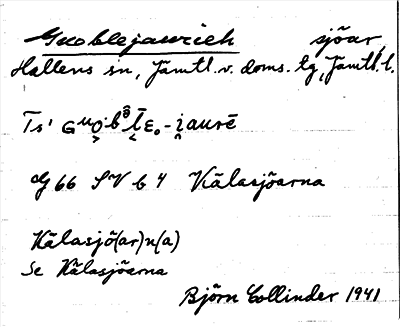 Guoblejaurieh sjöar,
Hallens sn, Jämtl. v. doms. tg, Jämtl. l.
G 66 SV b 4 Kälasjöarna
Kälasjö(ar)n(a)
Se Kälasjöarna
Björn Collinder 1941